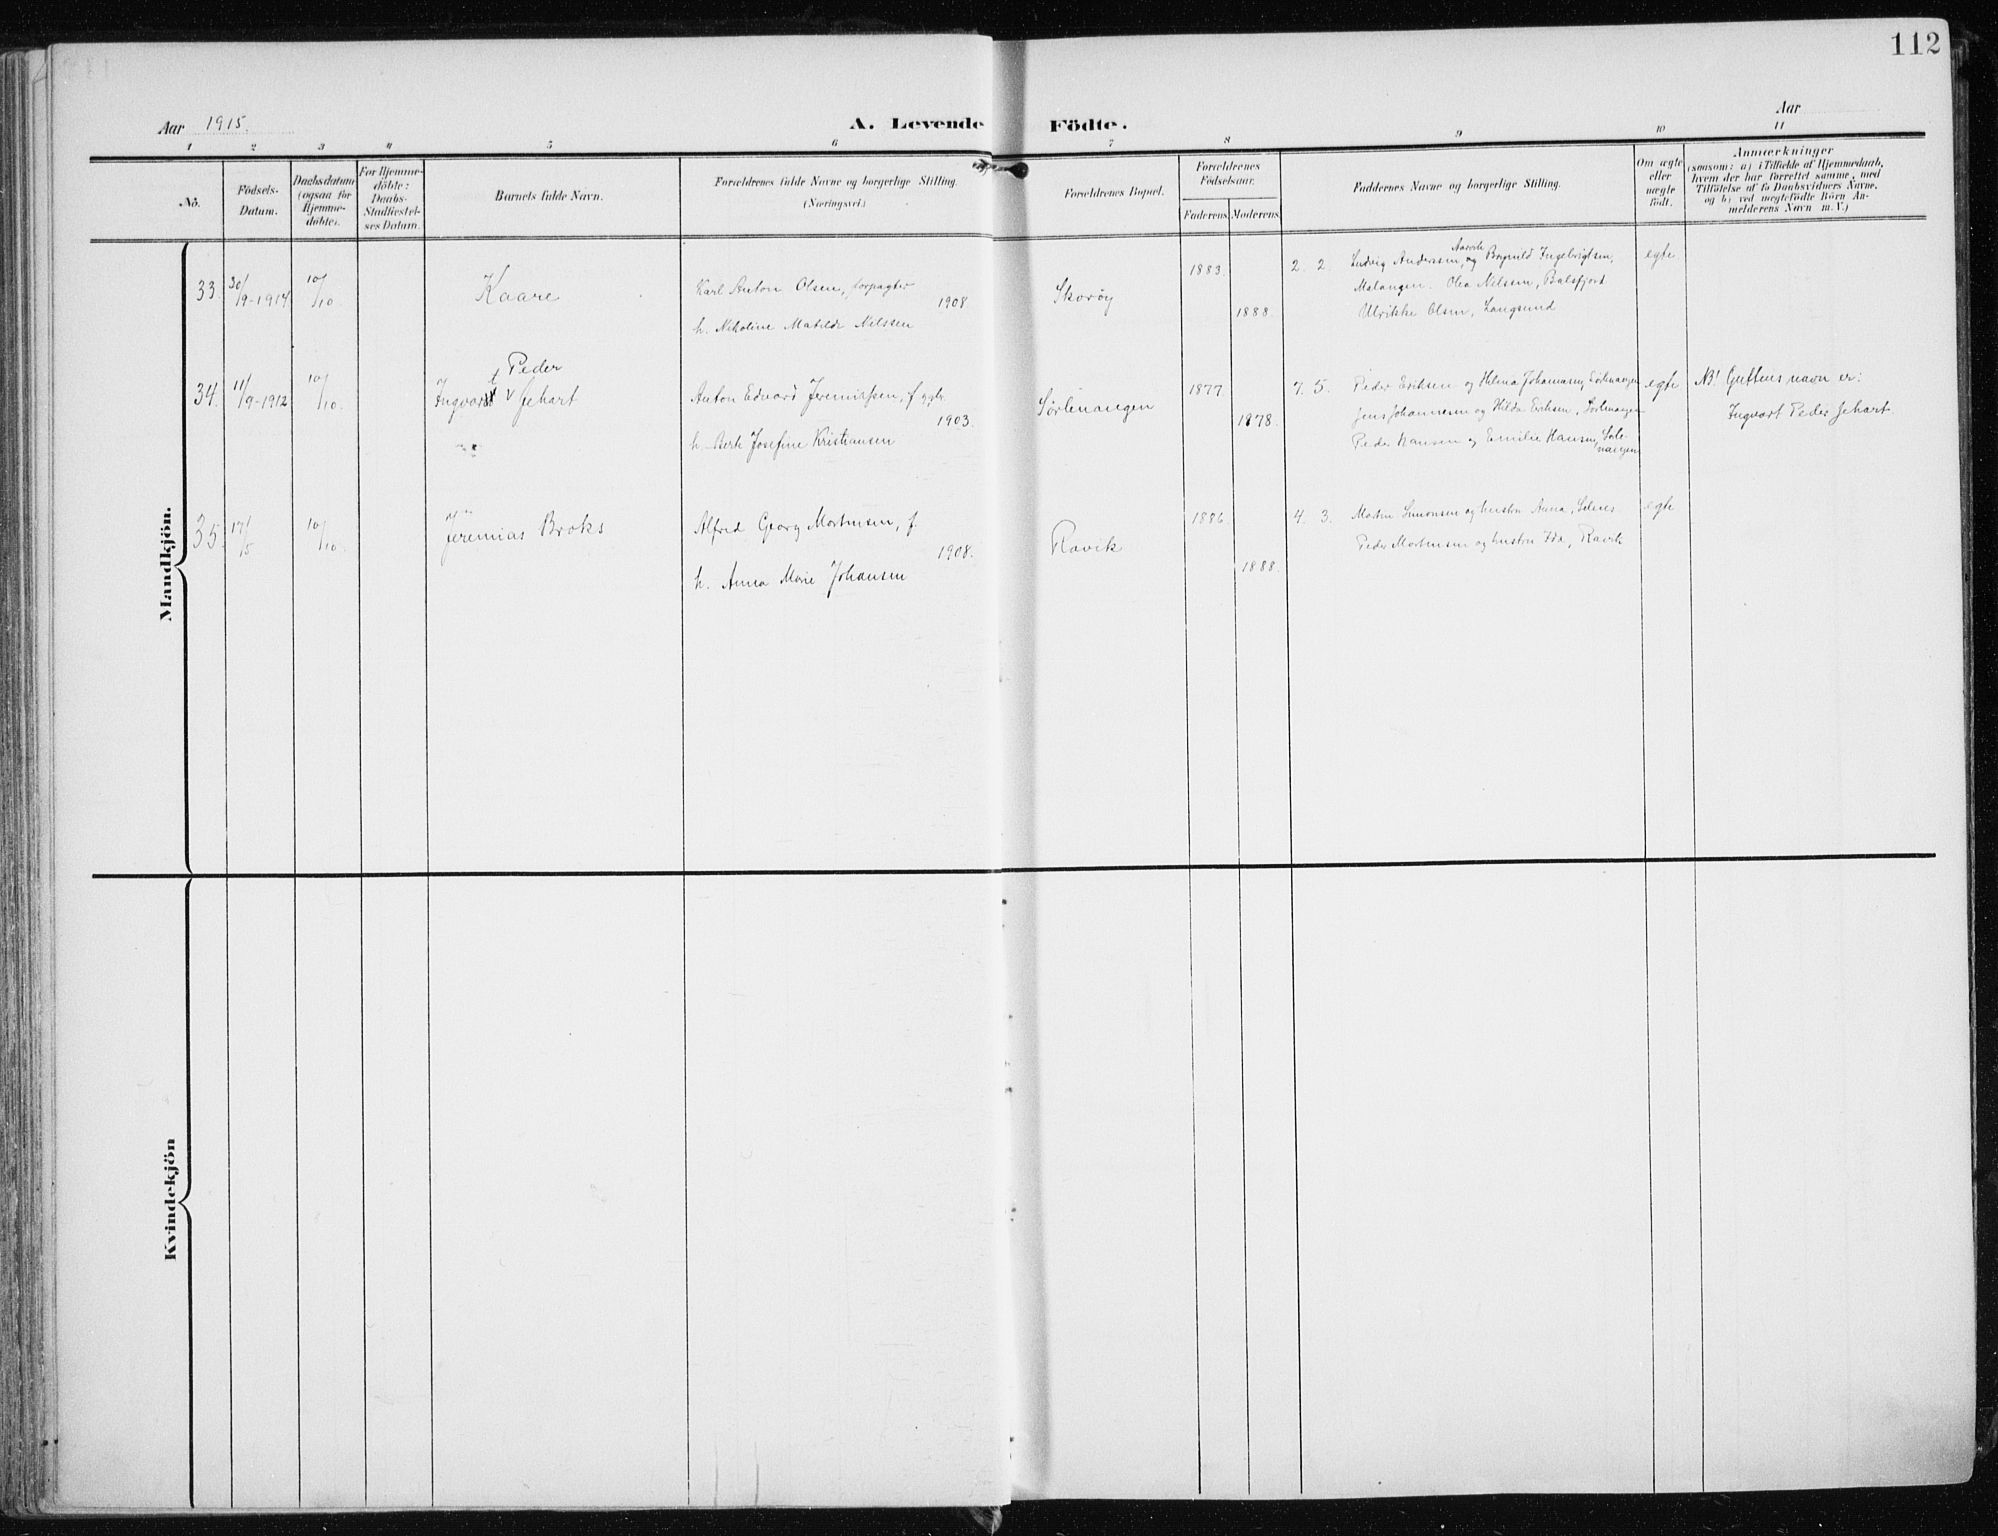 112
Aar 1915.
A. Levende Födte.
Aar
1 2 3 4 5 6 7 8 9 10 11
No.
Födsels-
Datum.
Daabsdatum
(ogsaa for
Hjemme-
döbte).
For Hjemme-
döbte:
Daabs-
Stadfæstel-
ses Datum.
Barnets fulde Navn.
Forældrenes fulde Navne og borgerlige Stilling.
(Næringsvei.)
Forældrenes Bopæl.
Forældrenes
Födselsaar.
Faderens. Moderens.
Faddernes Navne og borgerlige Stilling.
Om ægte
eller
uægte
födt.
Anmærkninger
(saasom: a) i Tilfælde af Hjemmedaab,
hvem der har forrettet samme, med
Tilföielse af to Daabsvidners Navne,
og b) ved uægtefödte Börn An-
melderens Navn m. V.)
Mandkjön.
33. 30/9-1914 10/10 Kaare
Karl Anton Olsen, forpagter
1908
h. Nikoline Matilde Nilssen
Skorøy
1883.
1888.
2. 2.
Ludvig Andersen, Aarvik og Bragnild Ingebrigtsen,
Malangen. Olea Nilssen, Balsfjord
Ulrikke Olsen, Langsund
egte
34. 11/9-1912 10/10.
Peder
Ingvart v Jehart
Anton Edvard Jeremiassen, f.
1903.
h. Berte Josefine Kristiansen
Sørlenangen
1877.
1878.
7. 5.
Peder Eriksen og Helma Johannesen, Sørlenangen
Jens Johannesen og Hilda Eriksen, Sørlenangen
Peder Hansen og Emilie Hansen,
egte
NB! Guttens navn er:
Ingvart Peder Jehart.
35. 17/5 10/10.
Jeremias Broks
Alfred Georg Mortensen, f.
1908.
h. Anna Marie Johansen
Ravik
1886.
1888.
4. 3.
Martin Simonsen og hustru Anna,
Peder Mortensen og hustru Ida, Ravik
egte
Kvindekjön